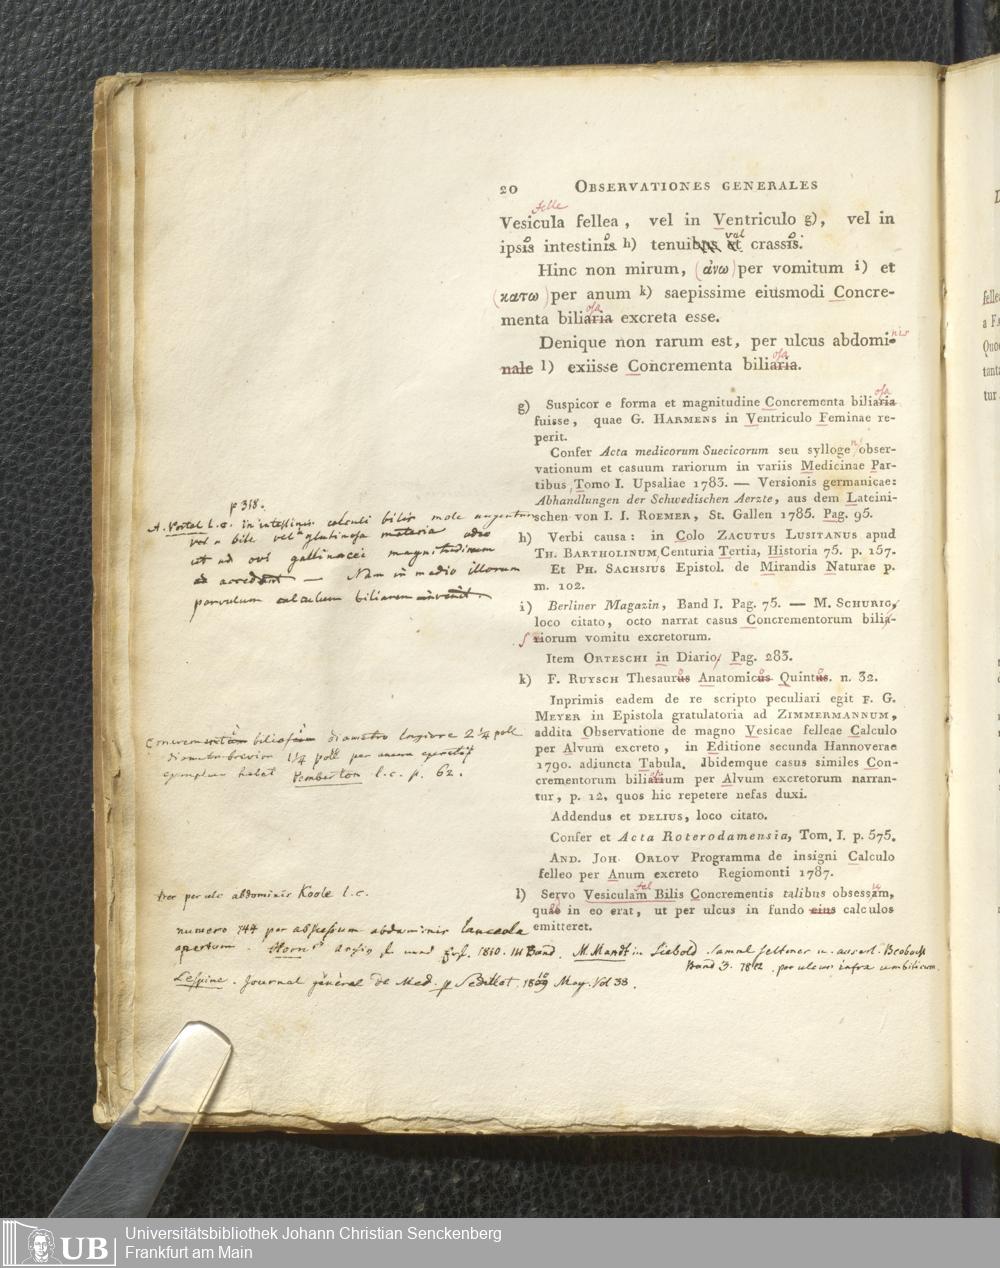 20 OBSERVATIONES GENERALES
felle
Vesicula fellea, vel in Ventriculo g), vel in
ipsis intestinis h) tenuibus et vel crassis.
Hinc non mirum, (ἀνω) per vomitum i) et
(κατω) per anum k) saepissime eiusmodi Concre-
osa
menta biliaria excreta esse.
Denique non rarum est, per ulcus abdomi- nis
osa
nale l) exiisse Concrementa biliaria.
osa
g) Suspicor e forma et magnitudine Concrementa biliaria
fuisse, quae G. HARMENS in Ventriculo Feminae re-
perit.
Confer Acta medicorum Suecicorum seu sylloge obser-
vationum et casuum rariorum in variis Medicinae Par-
tibus, Tomo I. Upsaliae 1783. — Versionis germanicae:
Abhandlungen der Schwedischen Aerzte, aus dem Lateini-
schen von I. I. ROEMER, St. Gallen 1785. Pag. 95.
h) Verbi causa: in Colo ZACUTUS LUSITANUS apud
TH. BARTHOLINUM, Centuria Tertia, Historia 75. p. 157.
Et PH. SACHSIUS Epistol. de Mirandis Naturae p.
m. 102.
i) Berliner Magazin, Band I. Pag. 75. — M. SCHURIG,
loco citato, octo narrat casus Concrementorum bilia-
riorum vomitu excretorum.
Item ORTESCHI in Diario, Pag. 283.
k) F. RUYSCH Thesaurus Anatomicus Quintus. n. 32.
Inprimis eadem de re scripto peculiari egit F. G.
MEYER in Epistola gratulatoria ad ZIMMERMANNUM,
addita Observatione de magno Vesicae felleae Calculo
per Alvum excreto, in Editione secunda Hannoverae
1790. adiuncta Tabula. Ibidemque casus similes Con-
crementorum biliarium per Alvum excretorum narran-
tur, p. 12, quos hic repetere nefas duxi.
Addendus et DELIUS, loco citato.
Confer et Acta Roterodamensia, Tom. I. p. 575.
AND. JOH. ORLOV Programma de insigni Calculo
felleo per Anum excreto Regiomonti 1787.
fel
l) Servo Vesiculam Bilis Concrementis talibus obsessam,
quae in eo erat, ut per ulcus in fundo eius calculos
emitteret.
p 318.
A. Portal l. c. in intestinis calculi bilis mole augentur
vel a bile vel a glutinosa materia adeo
ut ad ovi gallinacei magnitudinem
accedant — Nam in medio illorum
parvulum calculum biliarem invenit.
diametro longiore 2 1/4 poll
diametro breviore 1 1/4 poll per anum
exemplum habet Pemberton l. c. p. 62.
per ulc abdominis Koole l. c.
numero 144 per abscessum abdominis lanceola
apertum. Horns Archiv 1810. III Band. M. Mandt in Siebold Samml seltener u. auserl. Beobacht
Band 3. 1812. per ulcus infra umbilicum.
Lespine. Journal général de Med. p Sedillot. 1809 May. Vol 38.
Universitätsbibliothek Johann Christian Senckenberg
Frankfurt am Main
UB
felle
Quo
tant
tur